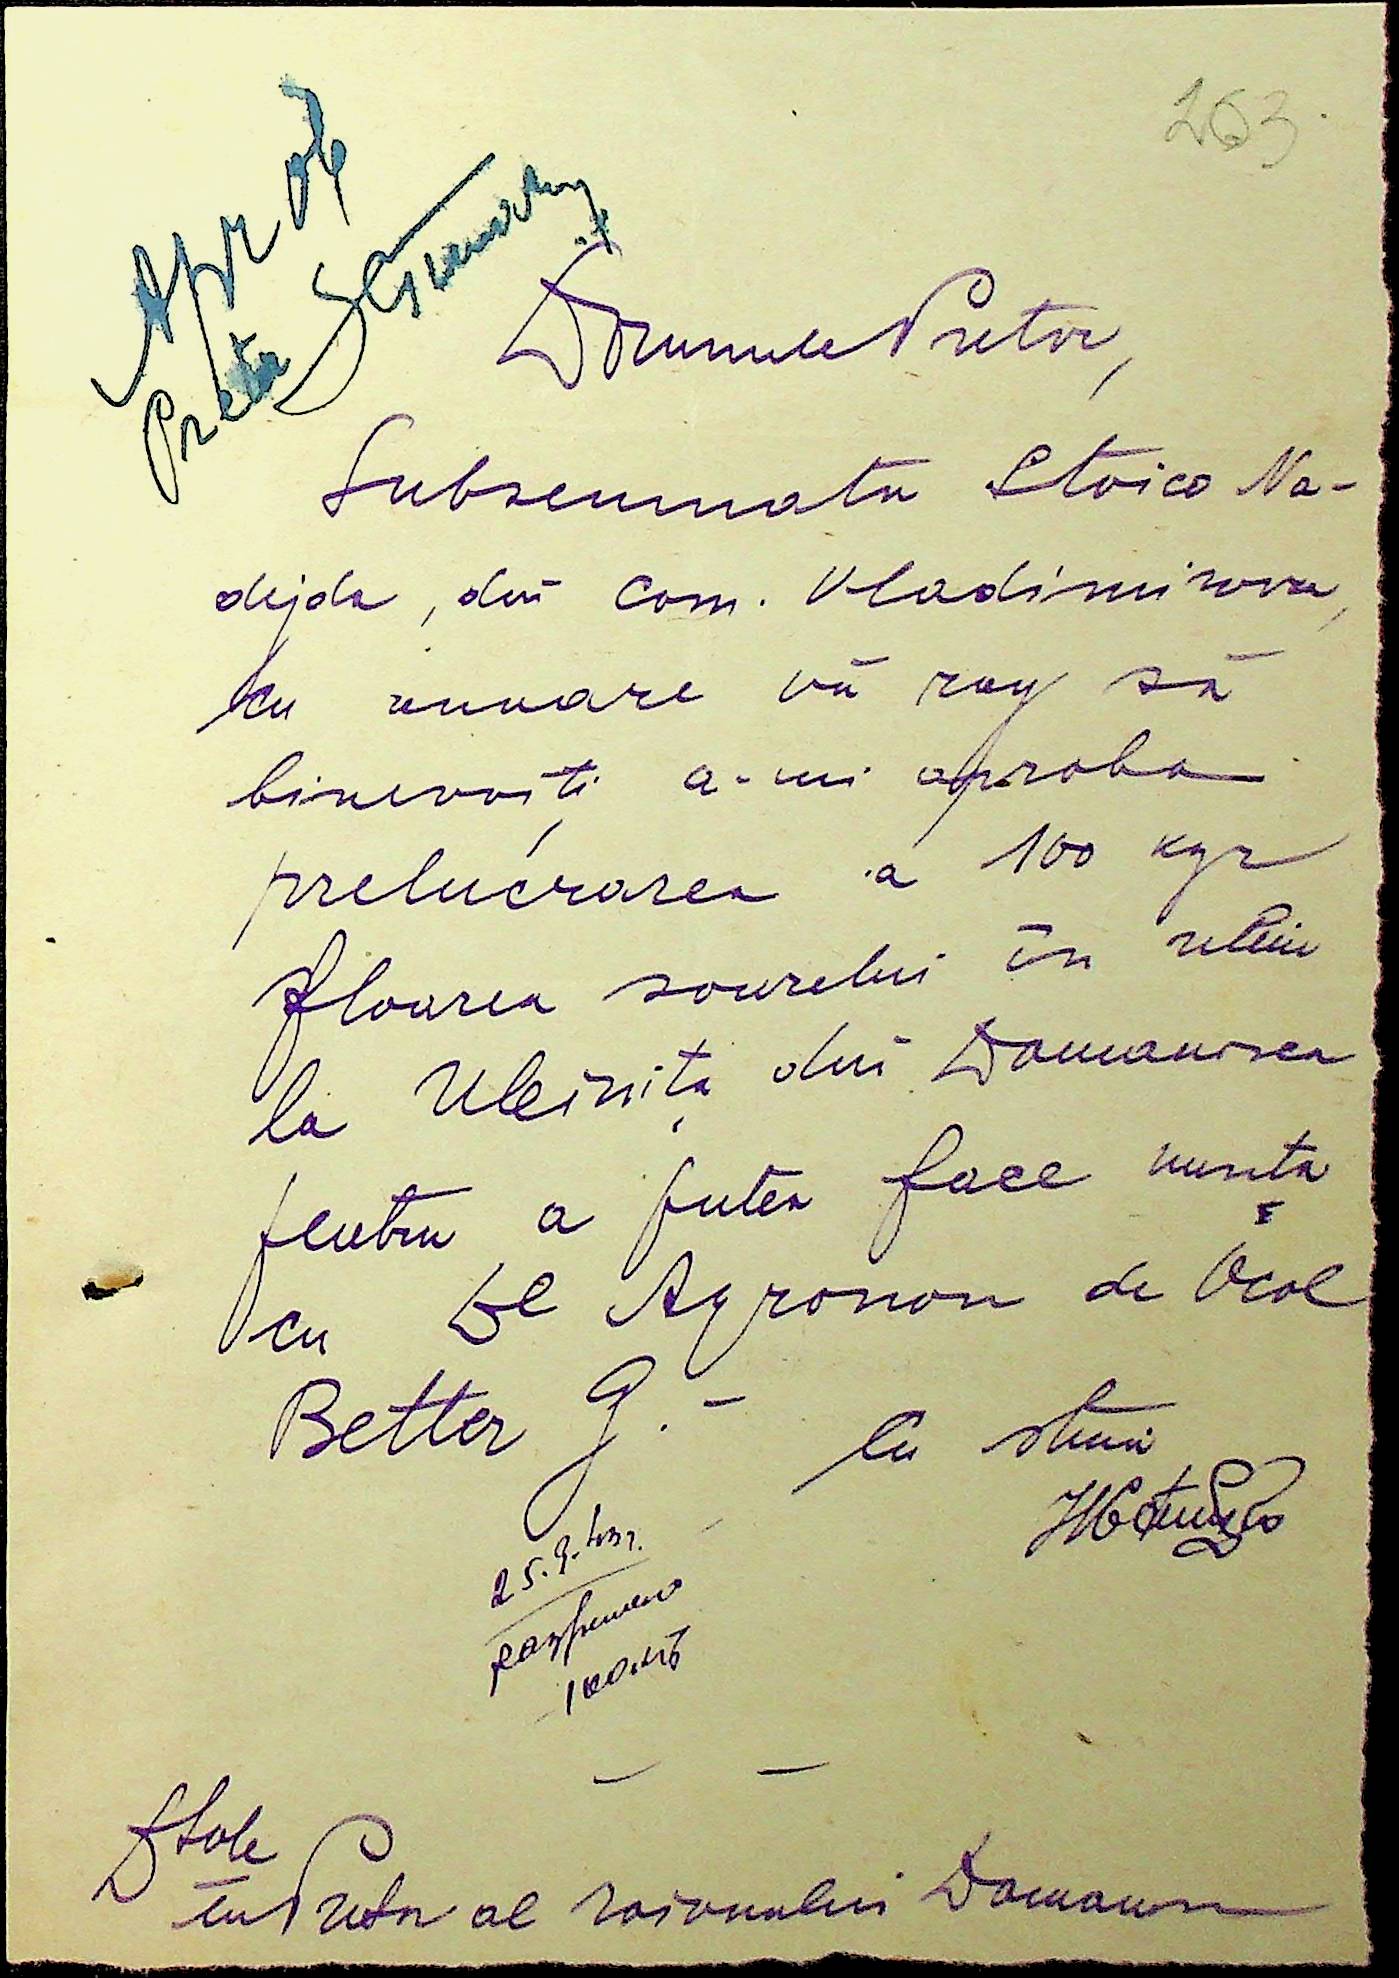 263.
Aprob
Pretor
Domnule Pretor,
Subsemnata Stoico Na-
dejda, din com. Vladimirovca,
cu onoare vă rog să
binevoiți a-mi aproba
prelucrarea a 100 kgr
floarea soarelui în uleiu
la Uleinița din Domaniovca
pentru a putea face nunta
cu Dl Agronom de Ocol
Better G. -
Cu stimă
25.9.43 г.
разрешено
100 кг
Dsale
Dlui Pretor al raionului Domaniovca